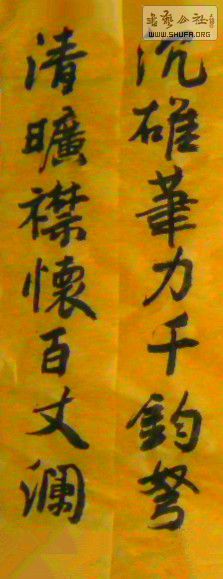 沉雄筆力千鈞弩
清曠襟懷百丈瀾
書藝公社
WWW.SHUFA.ORG